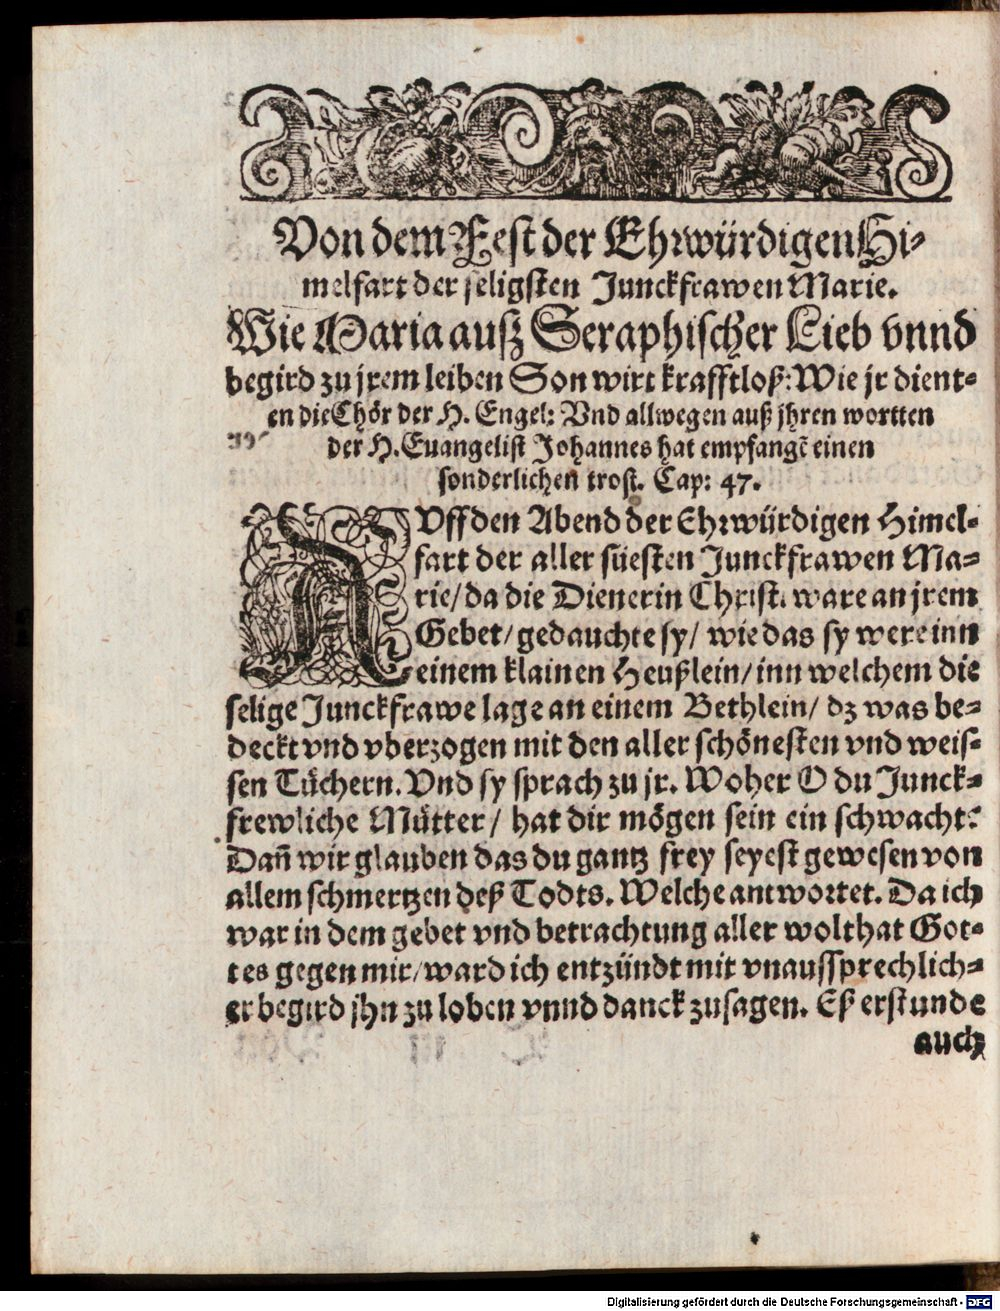 Von dem Fest der Ehrwürdigen Hi-
melfart der seligsten Junckfrawen Marie.
Wie Maria auß Seraphischer Lieb vnnd
begird zu jrem leiben Son wirt krafftloß: Wie jr dient-
en die Chör der H. Engel: Vnd allwegen auß jhren wortten
der H. Euangelist Johannes hat empfangē einen
sonderlichen trost. Cap: 47.
AVff den Abend der Ehrwürdigen Himel-
fart der aller süesten Junckfrawen Ma-
rie/ da die Dienerin Christi ware an jrem
Gebet/ gedauchte sy/ wie das sy were inn
einem klainen Heußlein/ inn welchem die
selige Junckfrawe lage an einem Bethlein/ dz was be-
deckt vnd vberzogen mit den aller schönesten vnd weis-
sen Tüchern. Vnd sy sprach zu jr. Woher O du Junck-
frewliche Mütter/ hat dir mögen sein ein schwacht?
Dañ wir glauben das du gantz frey seyest gewesen von
allem schmertzen deß Todts. Welche antwortet. Da ich
war in dem gebet vnd betrachtung aller wolthat Got-
tes gegen mir/ ward ich entzündt mit vnaussprechlich-
er begird jhn zu loben vnnd danck zusagen. Eß erstunde
auch
Digitalisierung gefördert durch die Deutsche Forschungsgemeinschaft - DFG